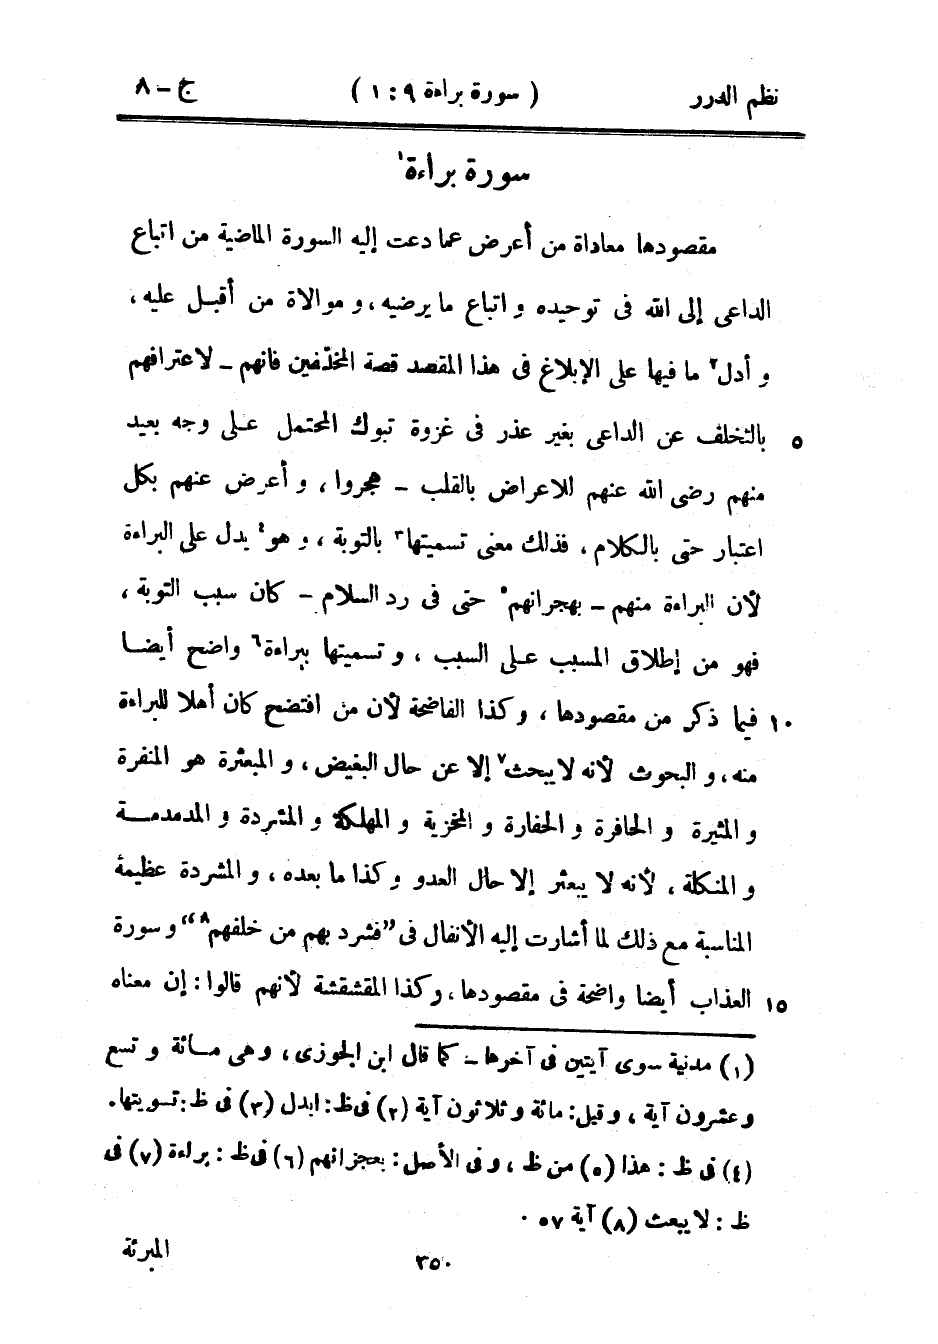 نظم الدرر ( سورة براءة ٩ : ١ ) ج - ٨
سورة براءة١
مقصودها معاداة من أعرض عما دعت إليه السورة الماضية من اتباع
الداعى إلى الله فى توحيده و اتباع ما يرضيه، و موالاة من أقبل عليه،
و أدل٢ ما فيها على الإبلاغ فى هذا المقصد قصة المخلفين فانهم - لاعترافهم
٥ بالتخلف عن الداعى بغير عذر فى غزوة تبوك المحتمل على وجه بعيد
منهم رضى الله عنهم للاعراض بالقلب - هجروا، و أعرض عنهم بكل
اعتبار حتى بالكلام، فذلك معنى تسميتها٣ بالتوبة، و هو٤ يدل على البراءة
لأن البراءة منهم - بهجرانهم٥ حتى فى رد السلام - كان سبب التوبة،
فهو من إطلاق المسبب على السبب، و تسميتها ببراءة٦ واضح أيضا
١٠ فيما ذكر من مقصودها، و كذا الفاضحة لأن من افتضح كان أهلا للبراءة
منه، و البحوث لأنه لا يبحث٧ إلا عن حال البغيض، و المبعثرة هو المنفرة
و المثيرة و الحافرة و الحفارة و المخزية و المهلكة و المشردة و المدمدمة
و المنكلة، لأنه لا يبعثر إلا حال العدو و كذا ما بعده، و المشردة عظيمة
المناسبة مع ذلك لما أشارت إليه الأنفال فى ”فشرد بهم من خلفهم٨“ و سورة
١٥ العذاب أيضا واضحة فى مقصودها، و كذا المقشقشة لأنهم قالوا: إن معناه
(١) مدنية سوى آيتين فى آخرها - كما قال ابن الجوزى، و هى مائة و تسع
و عشرون آية، و قيل: مائة و ثلاثون آية (٢) فى ظ: ابدل (٣) فى ظ: تسويتها.
(٤) فى ظ: هذا (٥) من ظ، و فى الأصل: بعجزانهم (٦) فى ظ: براءة (٧) فى
ظ: لا يبعث (٨) آية ٥٧.
٣٥٠ المبرئة